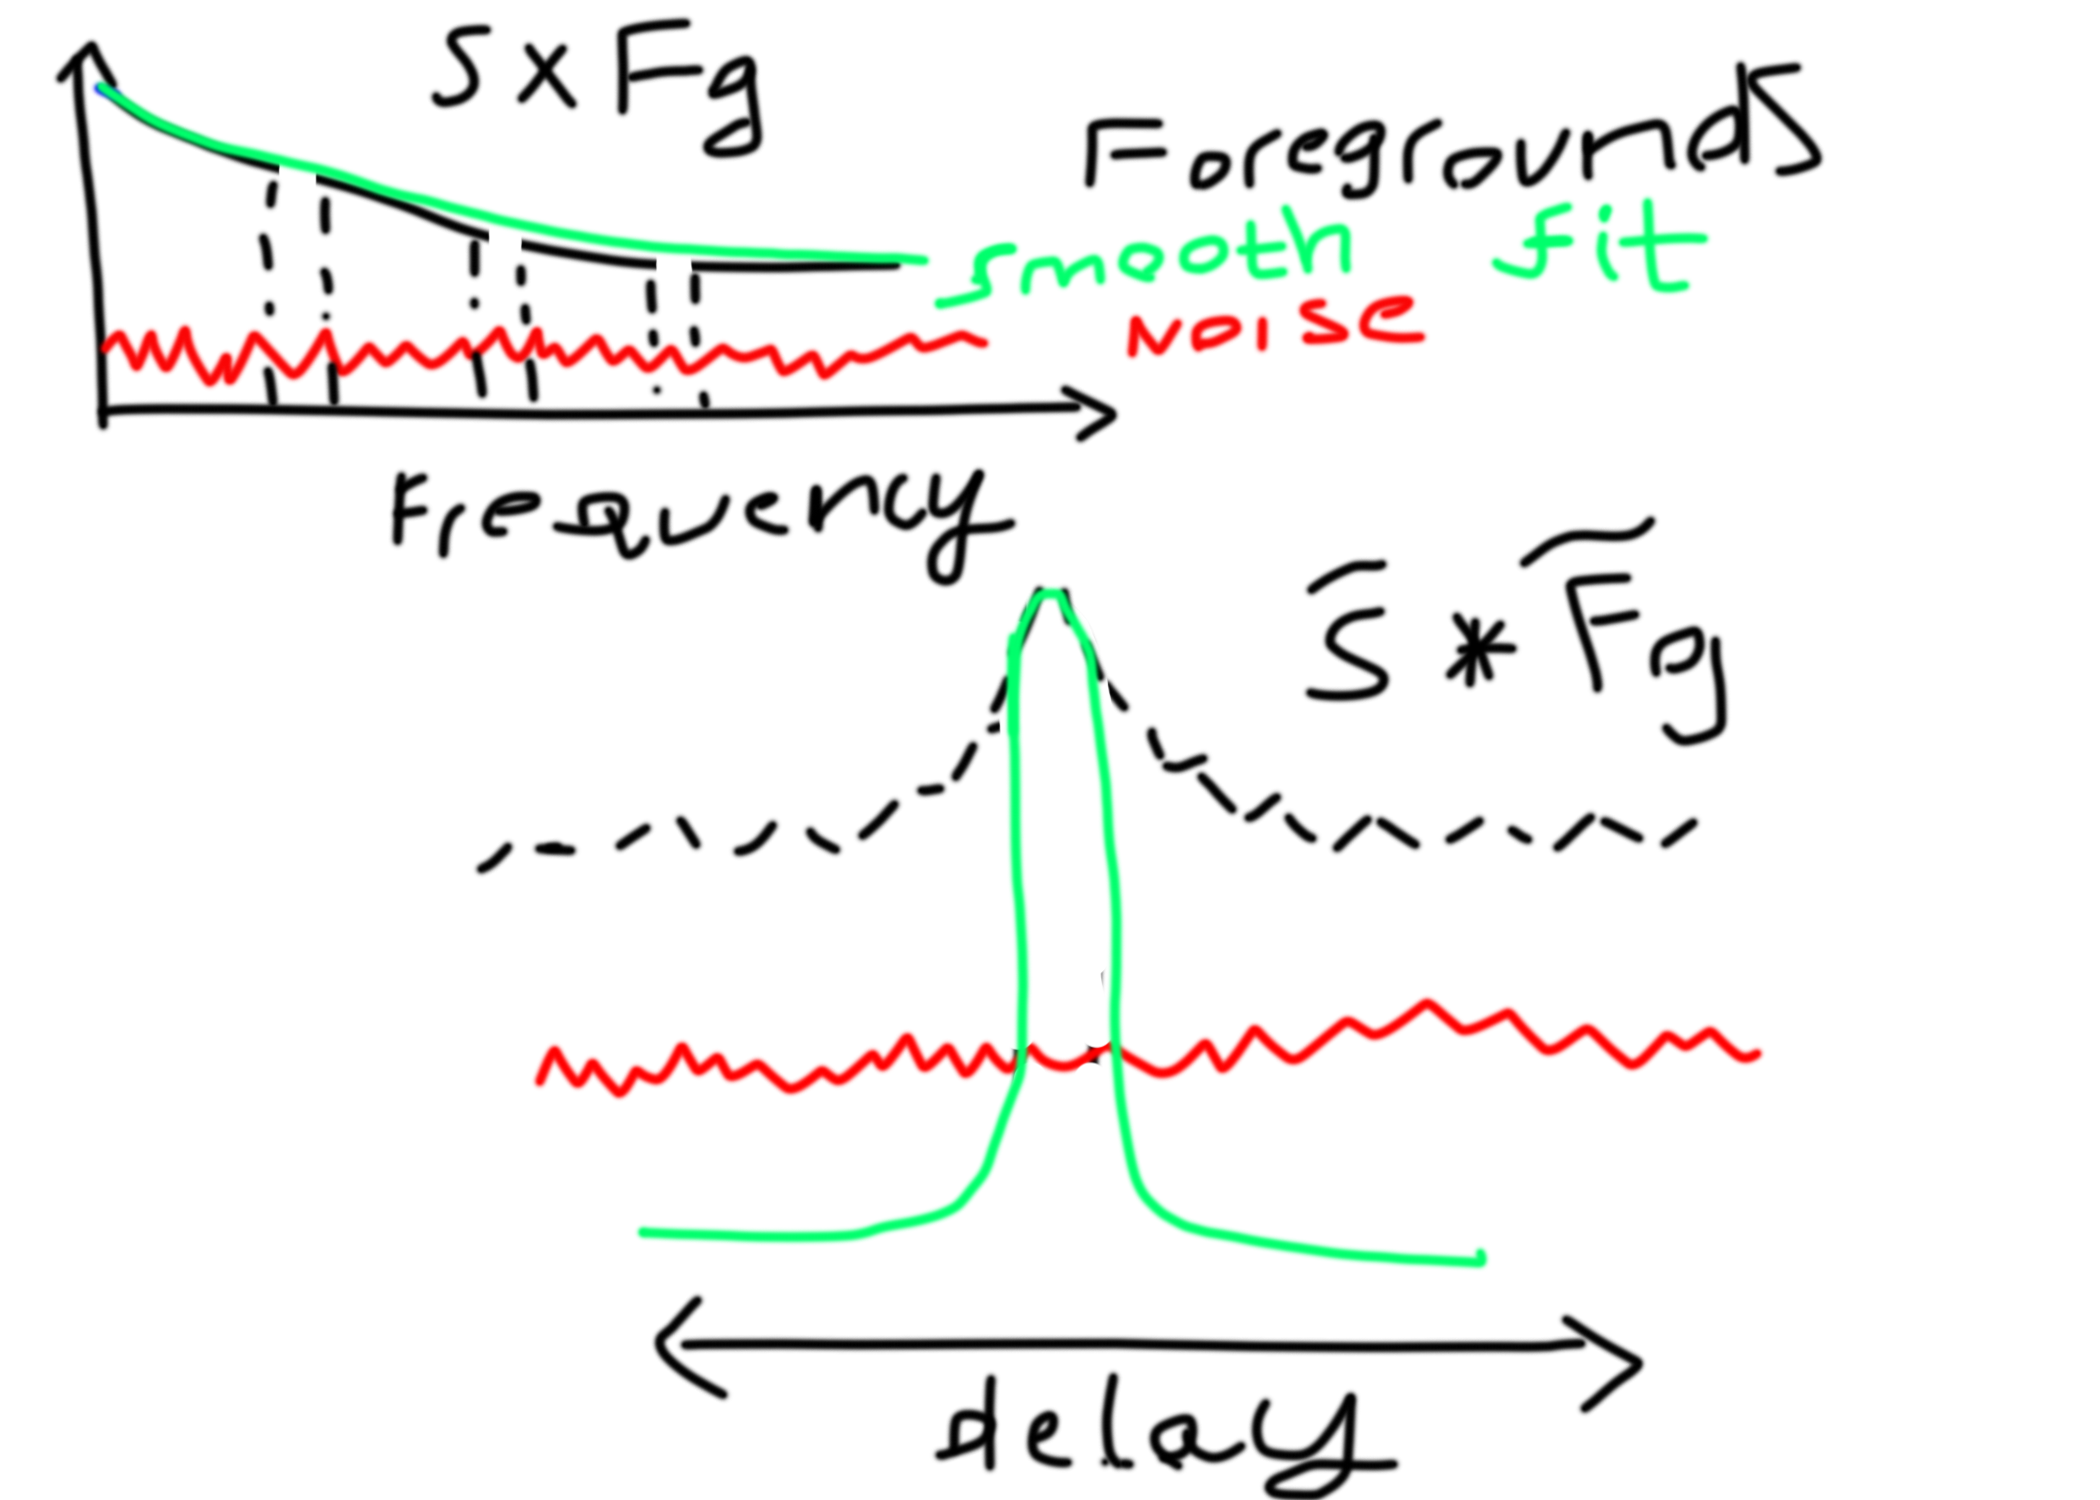 S x Fg
Foregrounds
smooth fit
Noise
Frequency
S̃ * F̃g
delay